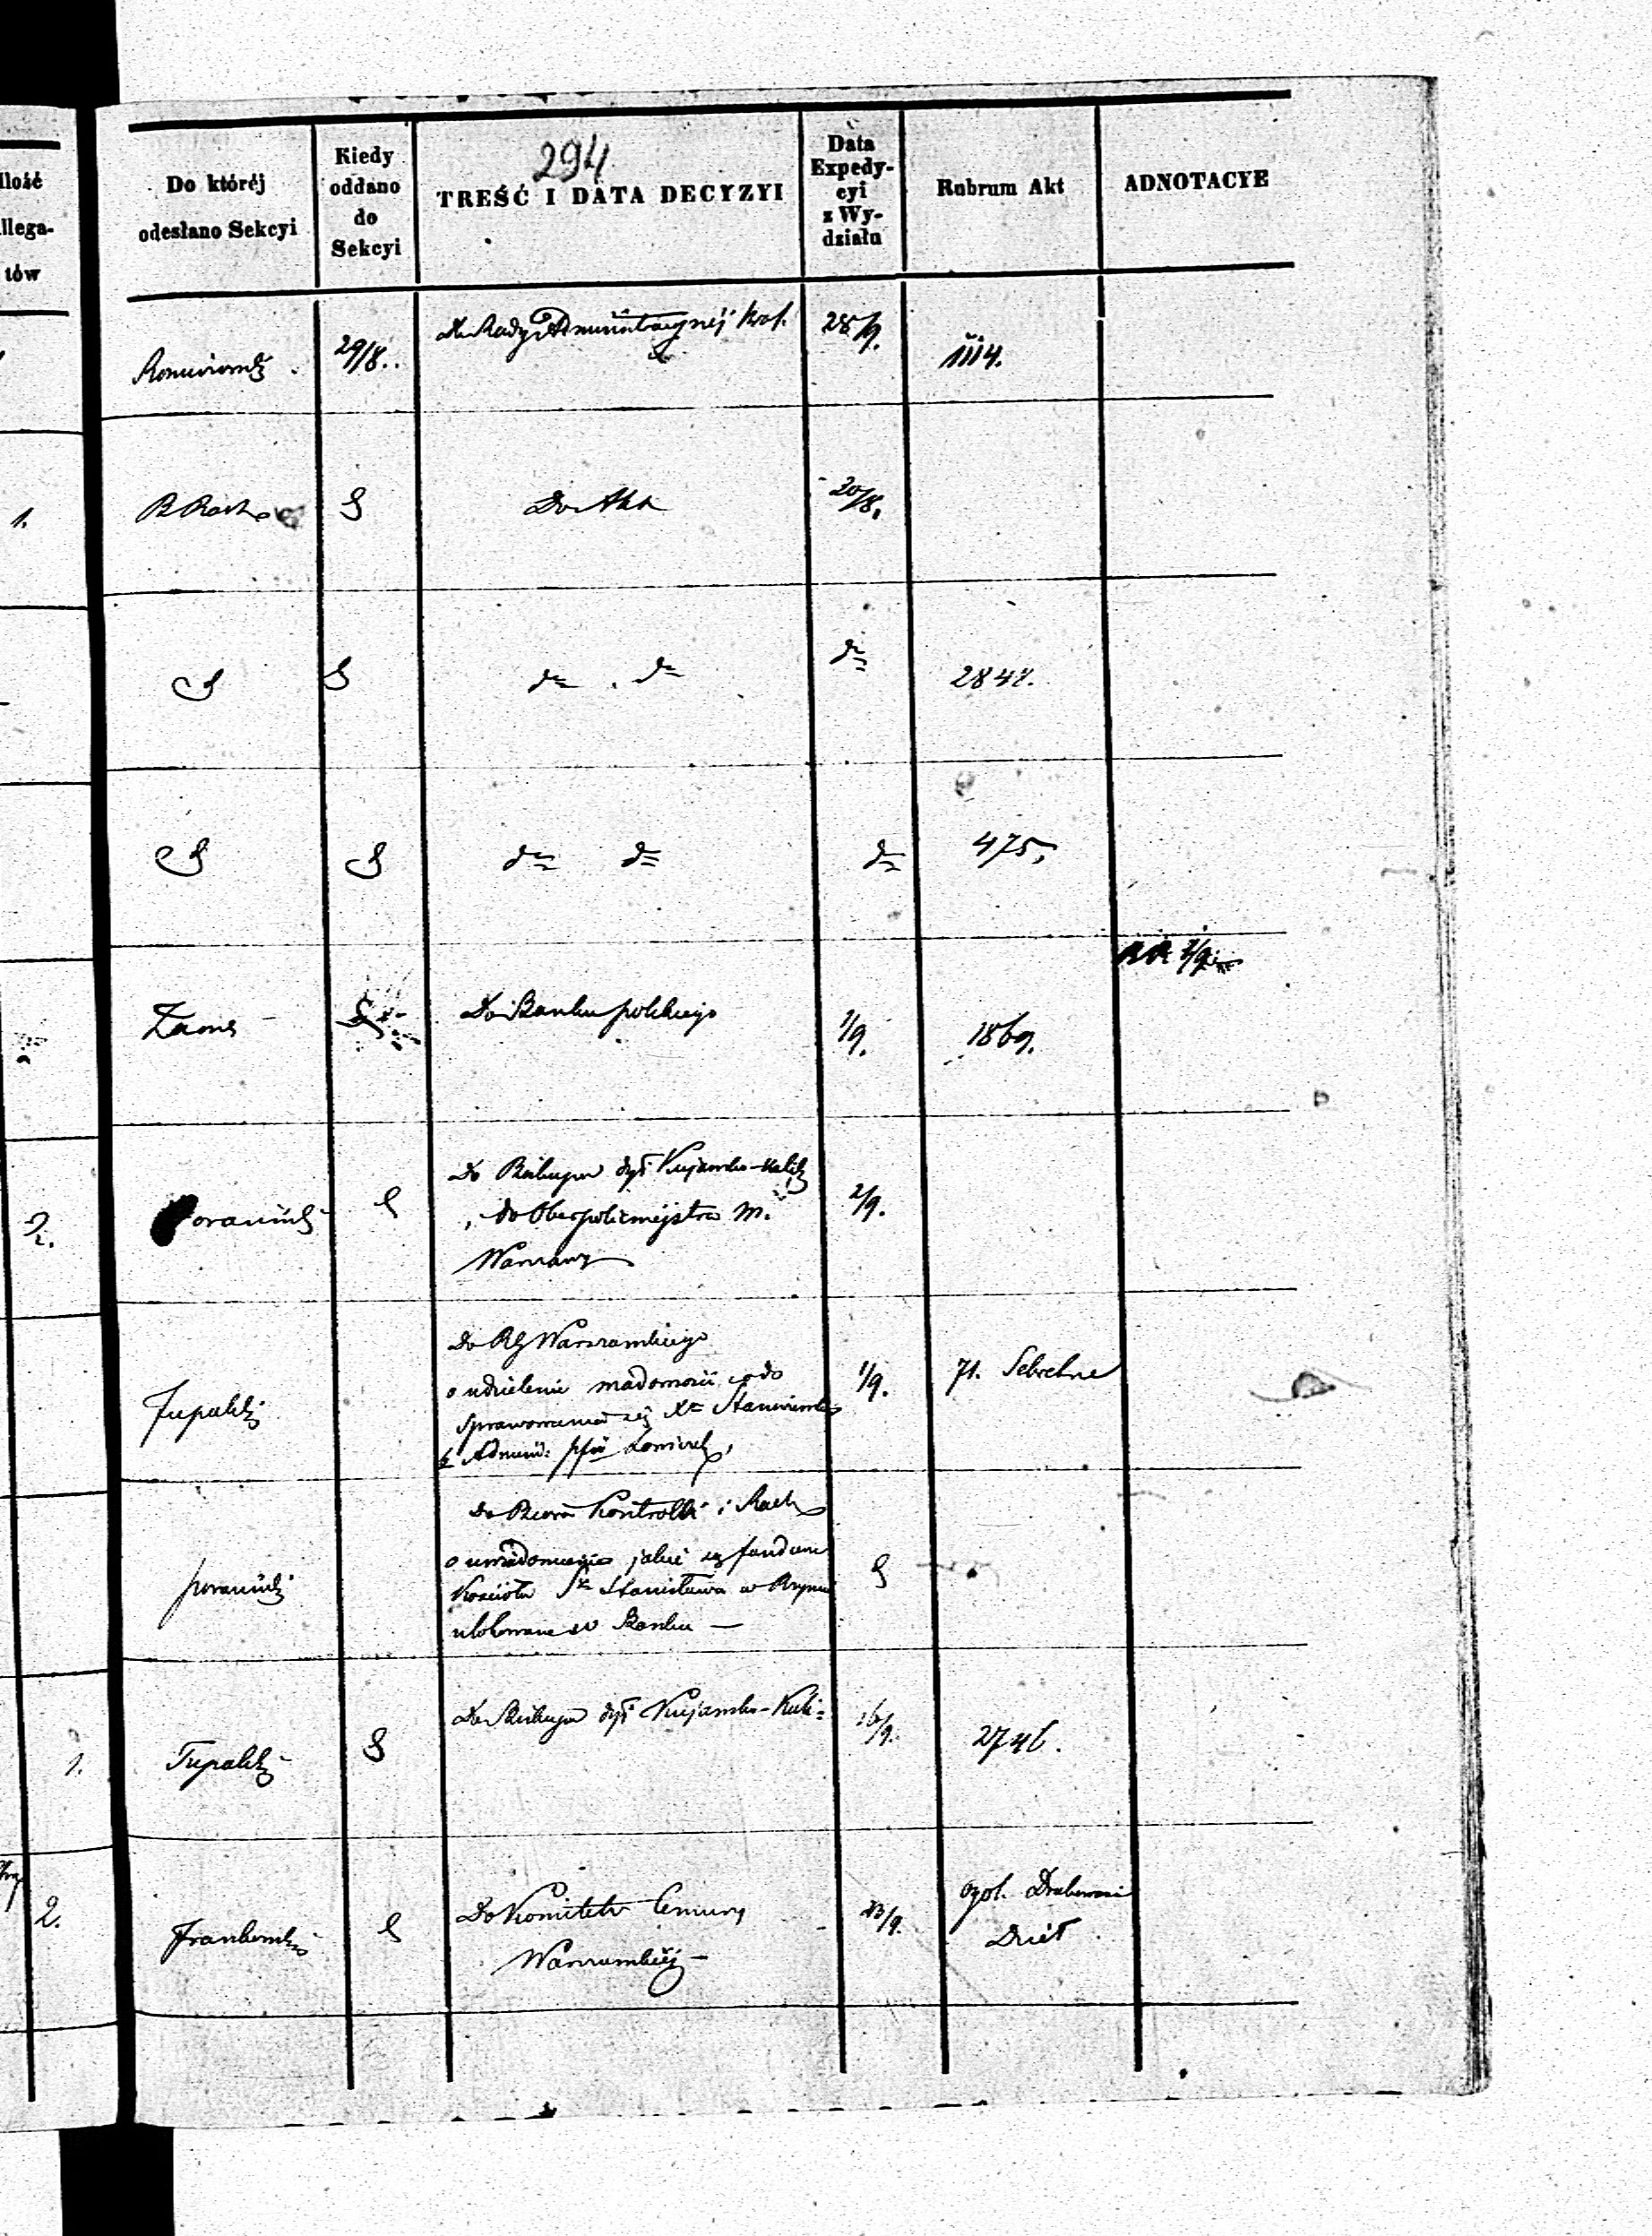 294
Ilość
allega-
tów
Do któréj
odesłano Sekcyi
Kiedy
oddano
do
Sekcyi
TREŚĆ I DATA DECYZYI
Data
Expedy-
cyi
z Wy-
działu
Rubrum Akt
ADNOTACYE
29/8.
Do Rady Administracyjnéj Król.
28/9.
1.
Do Akt
20/8.
do do
do
2848.
do do
do
475.
2/9
Do Banku polskiego
1/9.
1869.
2.
Do Biskupa dyć Kujawsko-Kalis
do Oberpolicmejstra M.
Warszawy
2/9.
Do RG Warszawskiego
o udzielenie wiadomości co do
sprawowania się Xa
b Admini:
1/9.
71. Sekretne
Do Biura Kontrolli i Rach
o uwiadomienie jakie są fundusze
Kościoła Sgo Stanisława w Rzymie
ulokowane w Banku —
1.
Tupalski
Do Biskupa dyć Kujawsko-Kali=
16/9.
2746.
2.
Frankowski
Do Komitetu Cenzury
Warszawskiéj —
23/9.
ogól.
Dzieł